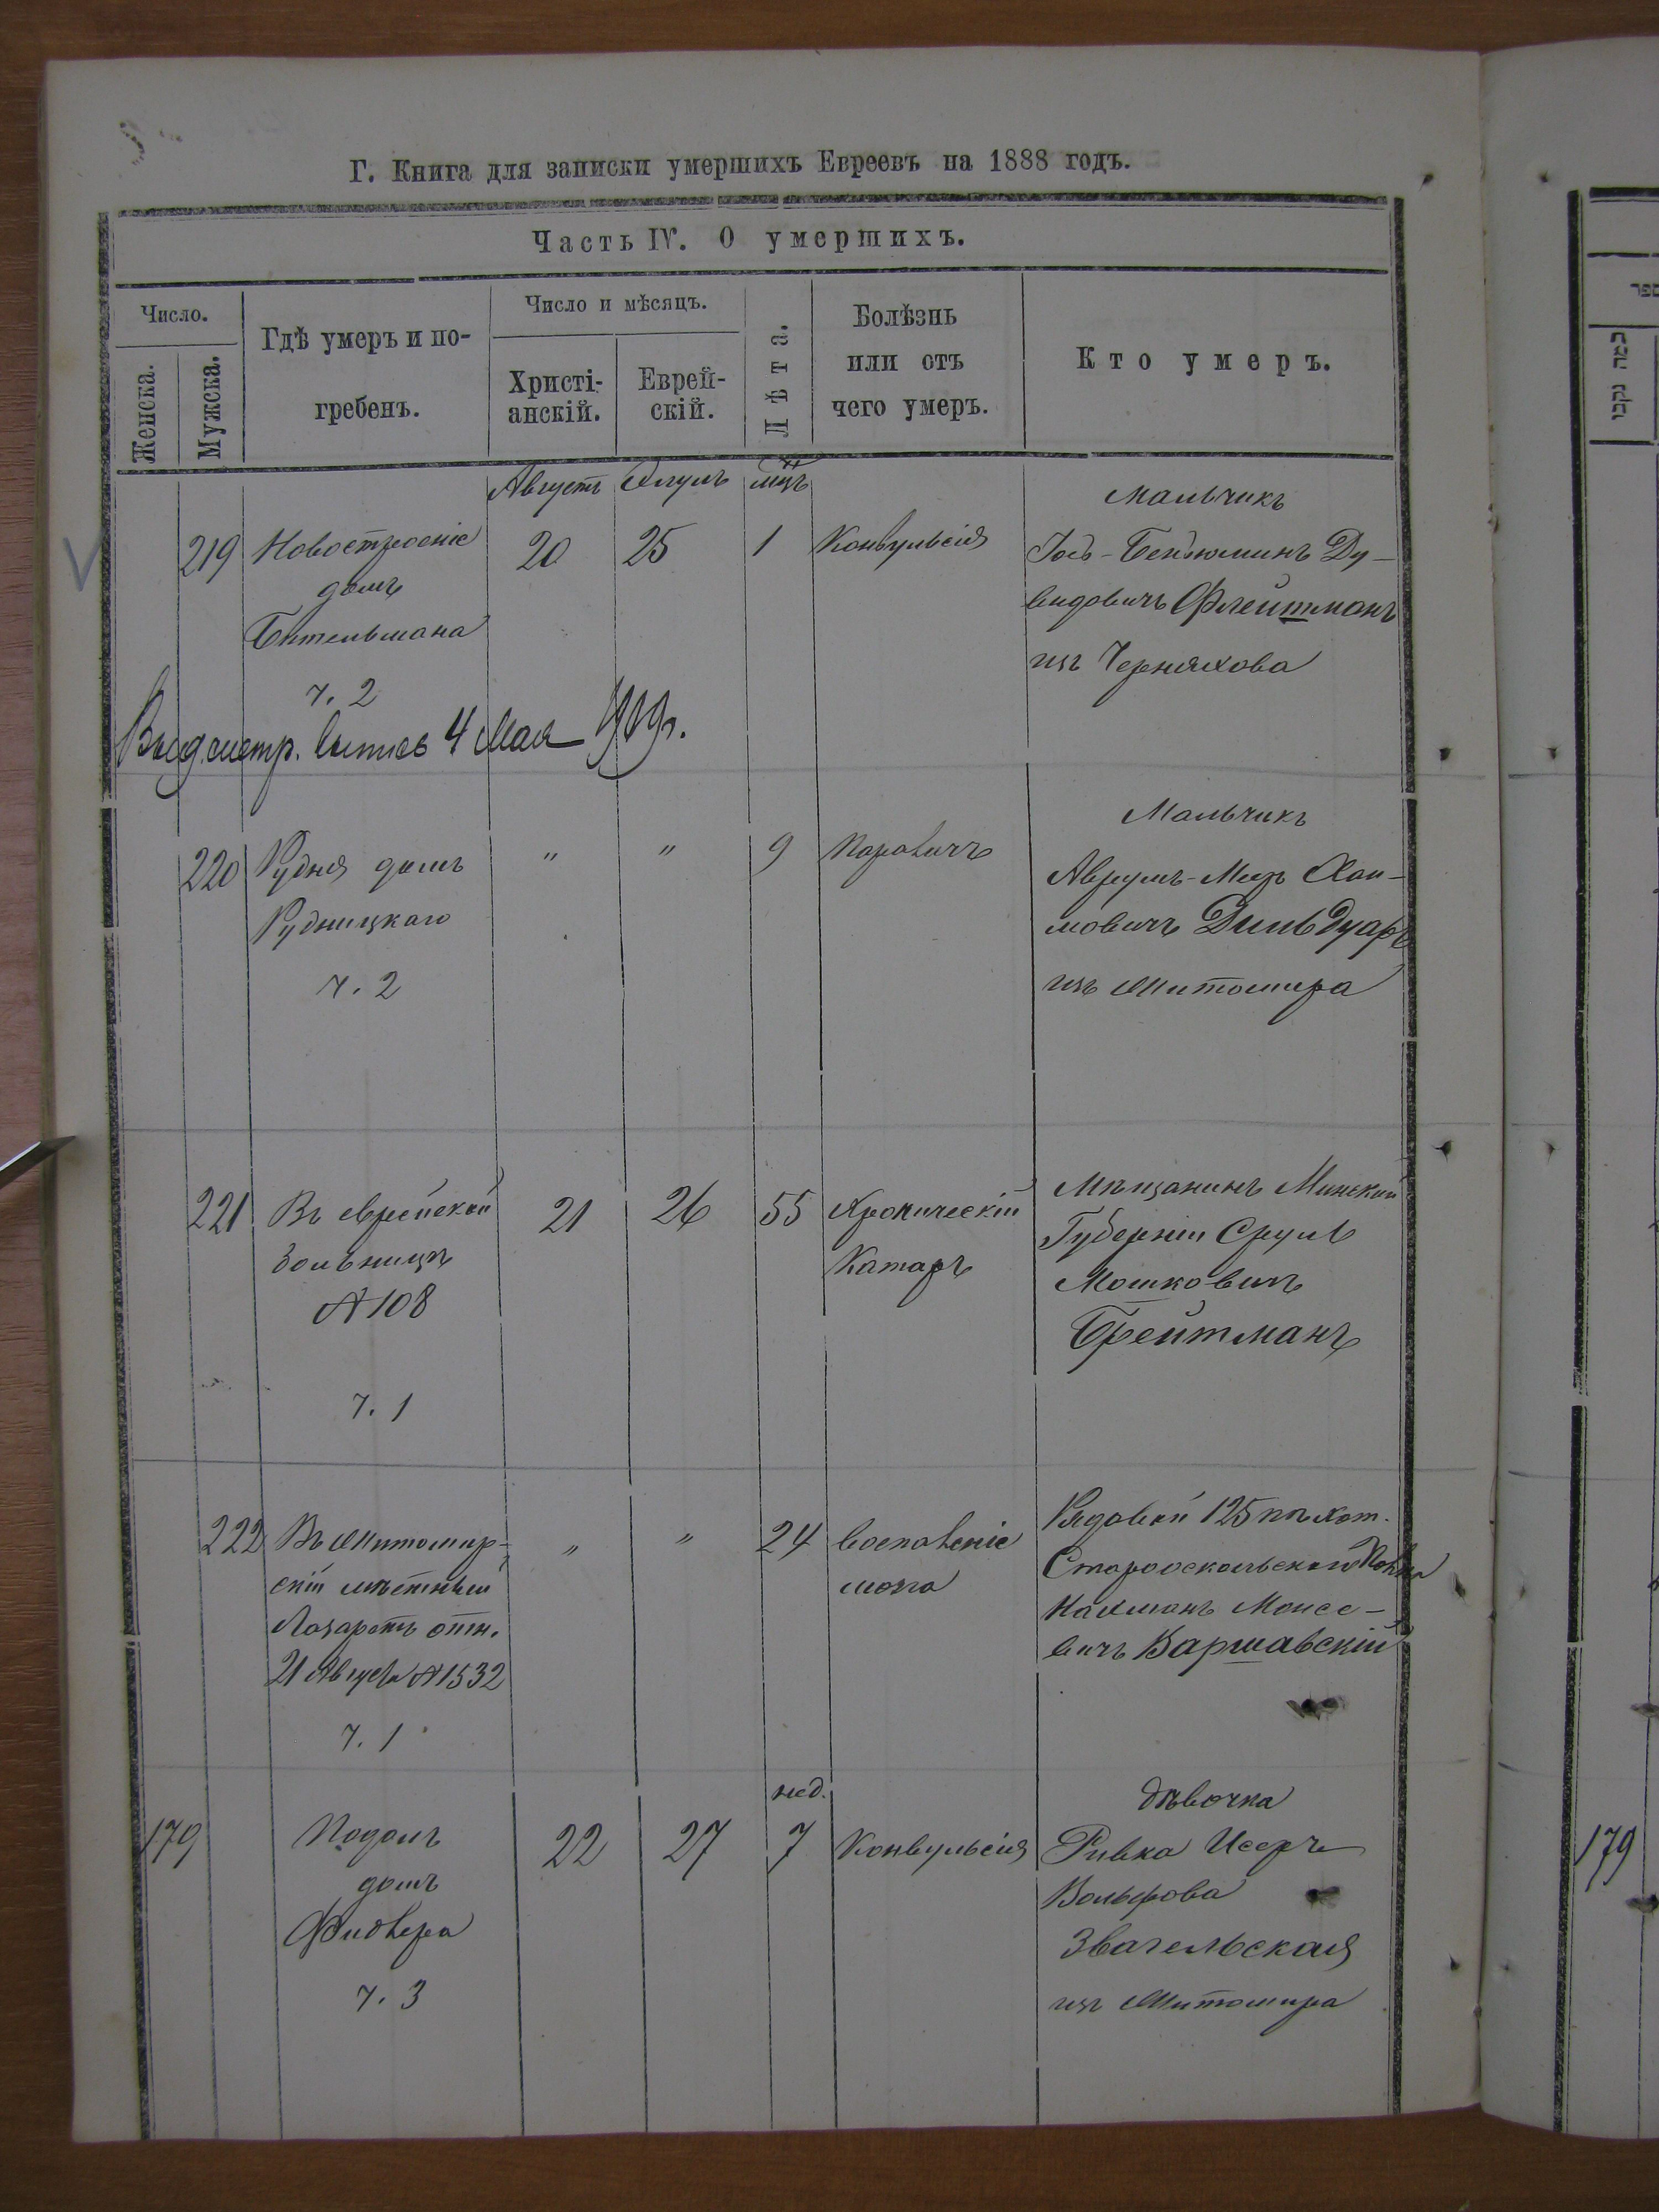 Г. Книга для записки умершихъ Евреевъ на 1888 годъ.
Часть IV. О умершихъ.
Число.
Женска.
Мужска.
Гдѣ умеръ и по-
гребенъ.
Число и мѣсяцъ.
Христі-
анскій.
Еврей-
скій.
Лѣта.
Болѣзнь
или отъ
чего умеръ.
Кто умеръ.
Августъ
Элулъ
мцъ
219
Новостроеніе
домъ
Бительмана
ч. 2
20
25
1
Конвульсія
Мальчикъ
Іось-Беньюминъ Ду-
видовичъ Флейтманъ
изъ Черняхова
Выд. метр. выпись 4 Мая 1919 г.
220
Рудня домъ
Рудницкаго
ч. 2
"
"
9
Мальчикъ
Аврумъ-Меер Хаи-
мовичъ
изъ Житомира
221
Въ еврейской
больницѣ
№ 108
ч. 1
21
26
55
Хроническій
Катаръ
Мѣщанинъ Минской
Губерніи Сруль
Мошковичъ
Брейтманъ
222
Въ Житомир-
скій мѣстный
Лазаретъ отн.
21 Августа № 1532
ч. 1
"
"
24
воспаленіе
мозга
Рядовой 125 пѣхот.
Старооскольскаго Полка
Нахманъ Моисе-
вичъ Варшавскій
179
Подолъ
домъ
ч. 3
22
27
нед.
7
Конвульсія
дѣвочка
Ривка Исеръ
Вольфова
Звагельская
изъ Житомира
179
ספר
כמה נקבו